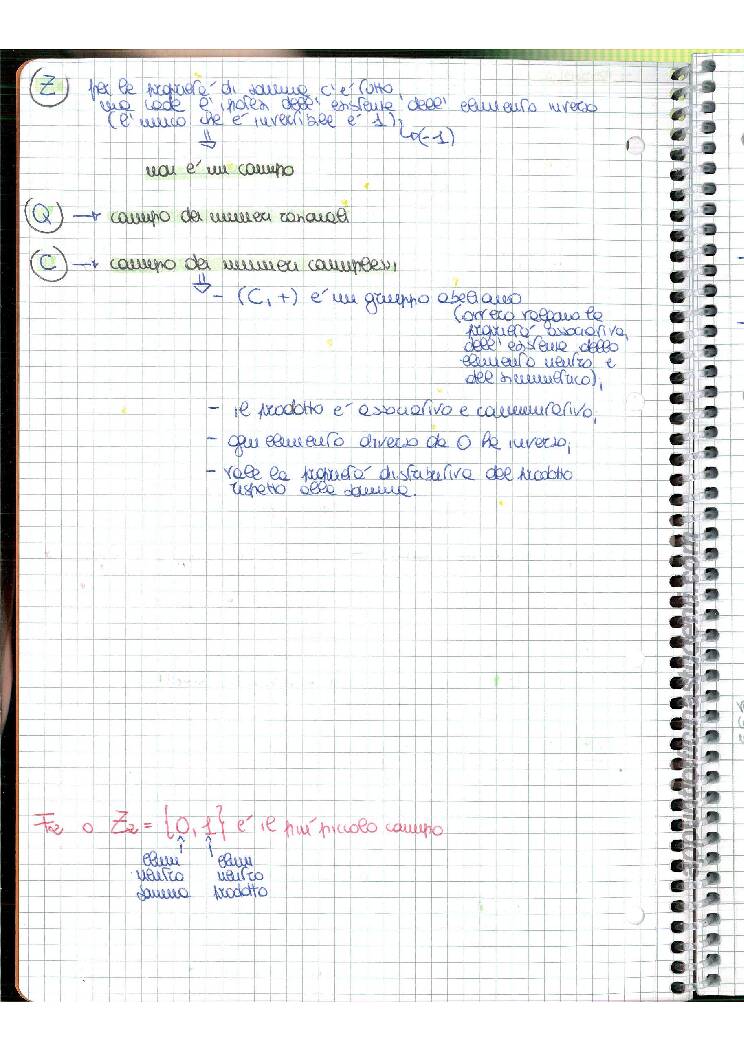 Z per le proprietà di somma c'è tutto,
ma cade l'ipotesi dell'esistenza dell'elemento inverso
(l'unico che è invertibile è 1);
(-1)
⇓
non è un campo
Q → campo dei numeri razionali
C → campo dei numeri complessi
⇓ - (C, +) è un gruppo abeliano
(ovvero valgono le
proprietà associativa,
dell'esistenza dello
elemento neutro e
del simmetrico),
- il prodotto è associativo e commutativo;
- ogni elemento diverso da 0 ha inverso;
- vale la proprietà distributiva del prodotto
rispetto alla somma.
F₂ o Z₂ = {0, 1} è il più piccolo campo
elem elem
neutro neutro
somma prodotto